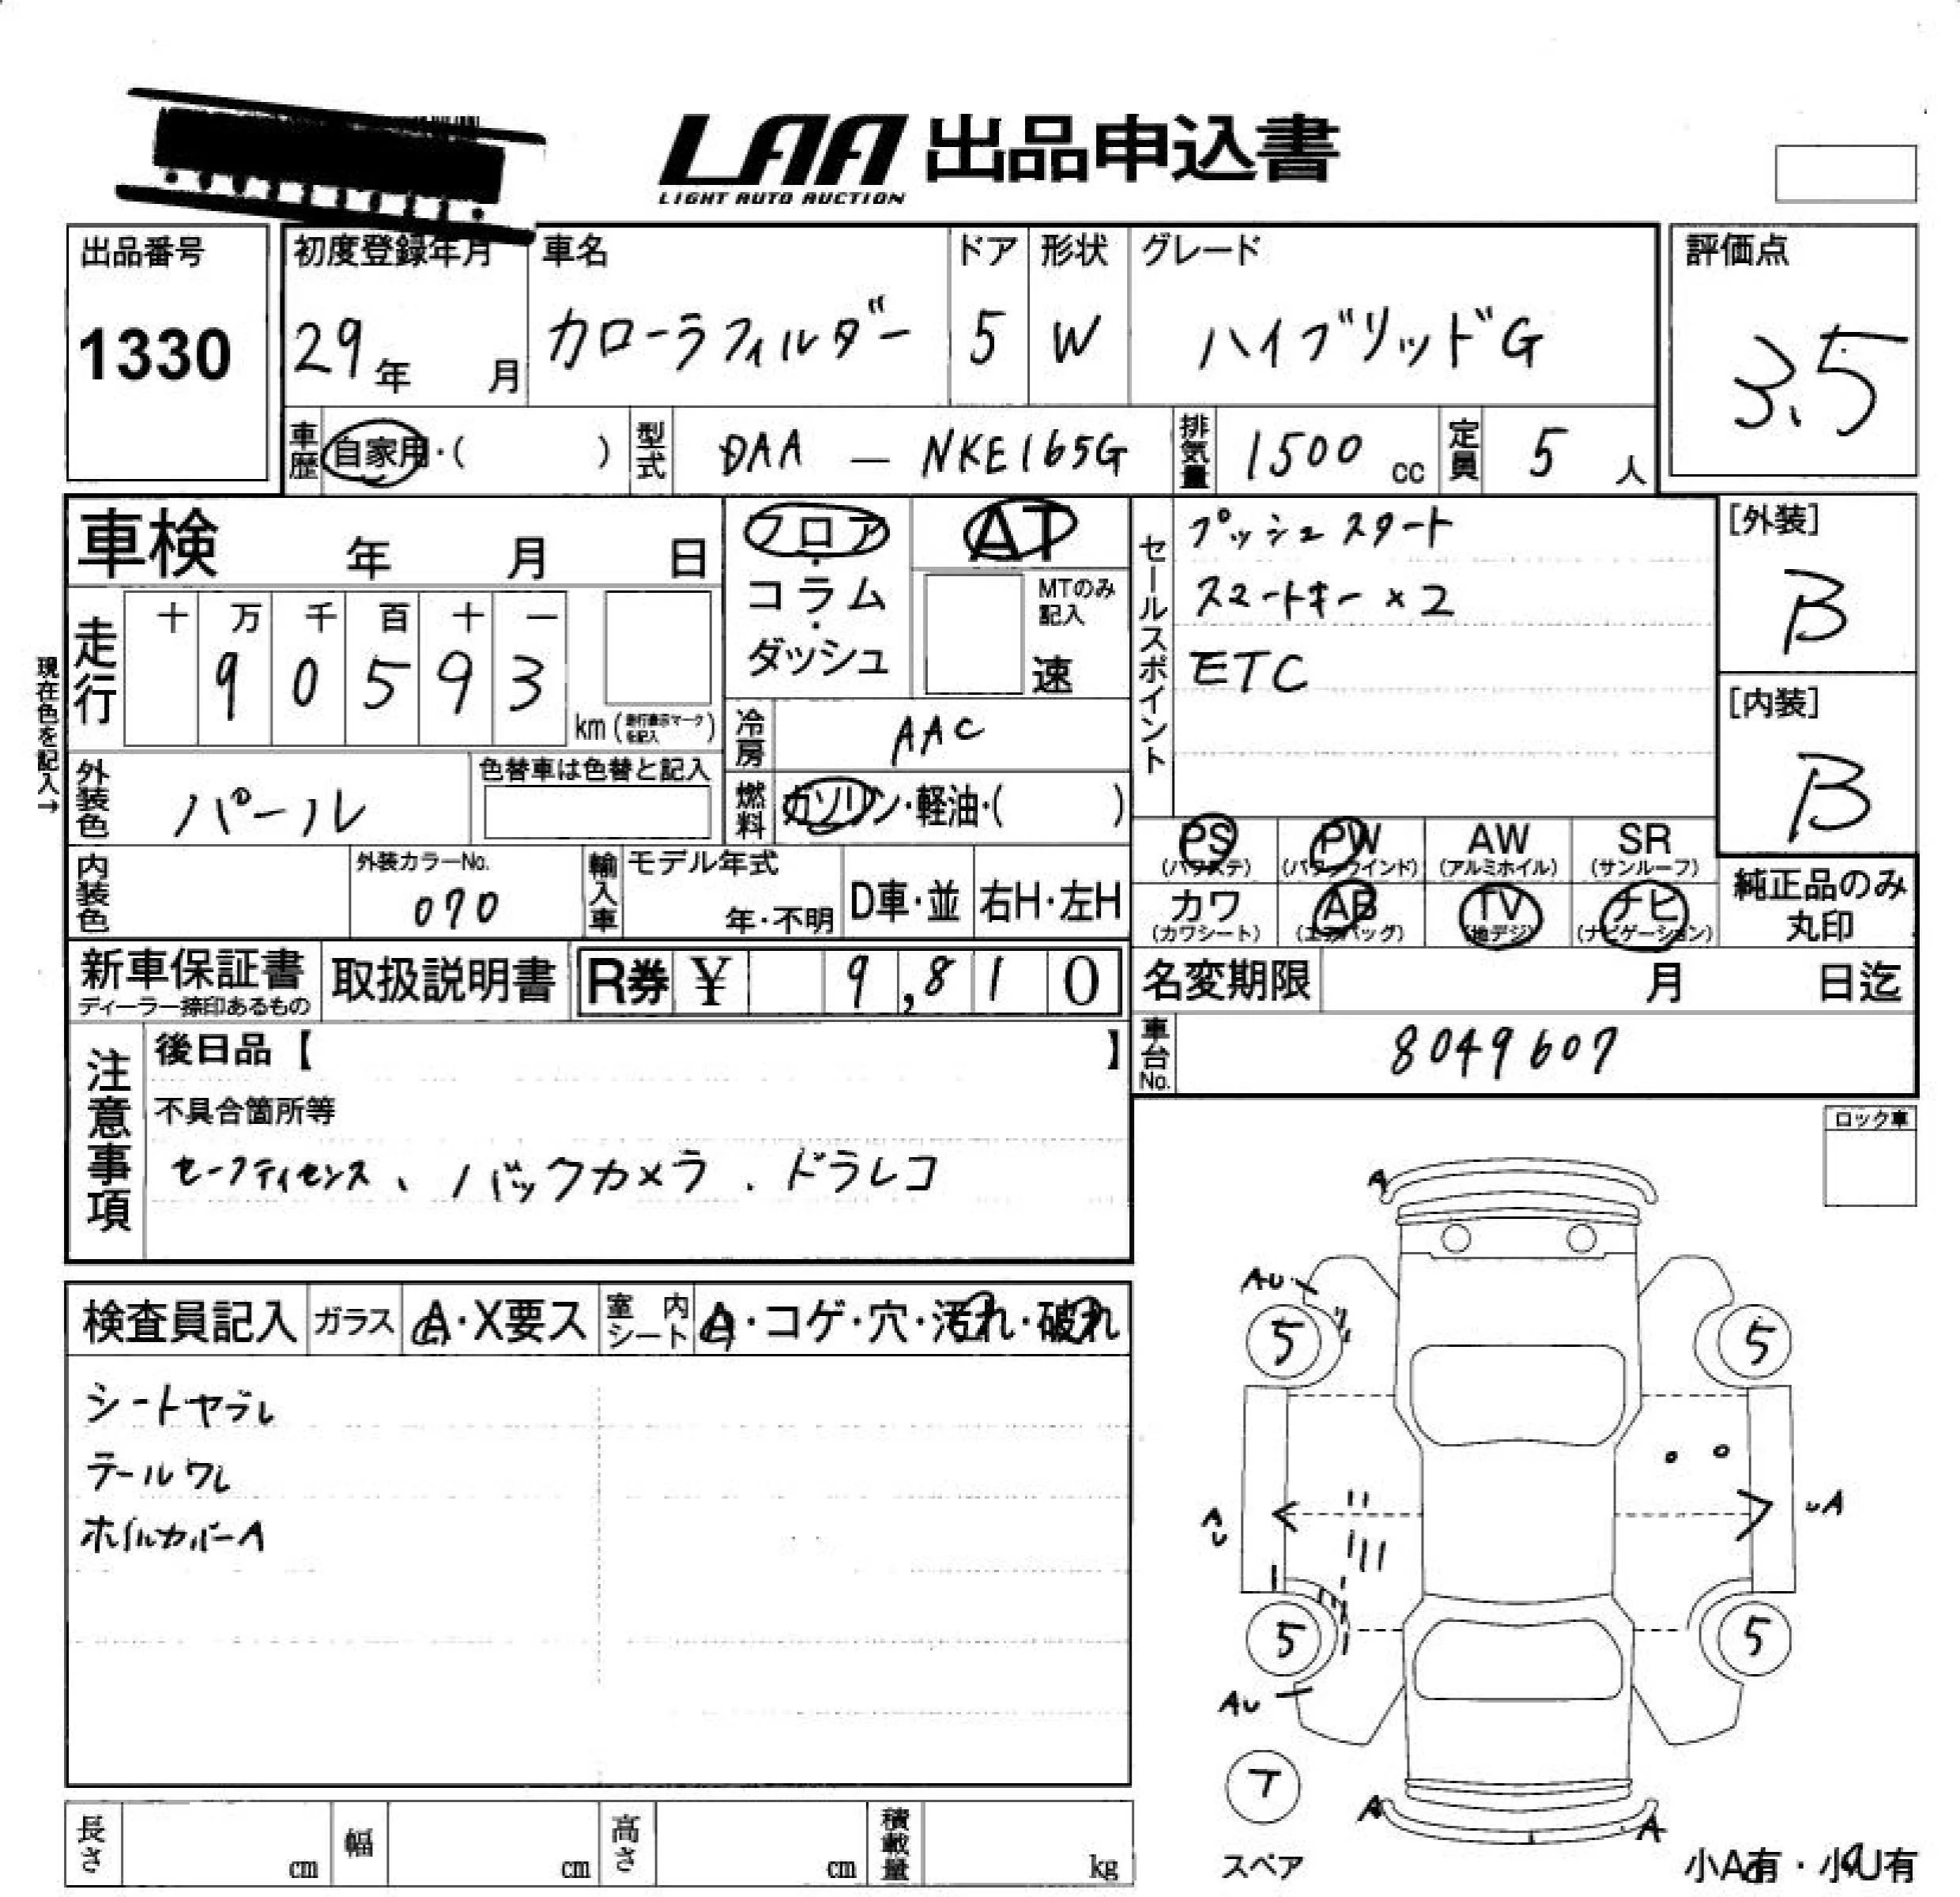 LAA 出品申込書
LIGHT AUTO AUCTION
出品番号
1330
初度登録年月
29年 月
車名
カローラフィルダー
ドア
5
形状
W
グレード
ハイブリッドG
評価点
3.5
車歴 自家用・( )
型式 DAA － NKE165G
排気量 1500 cc
定員 5 人
車検 年 月 日
走行
十 万 千 百 十 一
9 0 5 9 3
km (走行表示マークを記入)
現在色を記入→
フロア・コラム・ダッシュ
AT
MTのみ記入
速
冷房 AAC
燃料 ガソリン・軽油・( )
外装色 パール
色替車は色替と記入
内装色
外装カラーNo.
070
輸入車
モデル年式
年・不明
D車・並
右H・左H
セールスポイント
プッシュスタート
スマートキー×2
ETC
[外装]
B
[内装]
B
PS (パワステ)
PW (パワーウインド)
AW (アルミホイル)
SR (サンルーフ)
カワ (カワシート)
AB (エアバッグ)
TV (地デジ)
ナビ (ナビゲーション)
純正品のみ丸印
新車保証書
ディーラー捺印あるもの
取扱説明書
R券 ¥ 9,810
名変期限 月 日迄
車台No. 8049607
注意事項
後日品【 】
不具合箇所等
セーフティセンス、バックカメラ．ドラレコ
ロック車
検査員記入
ガラス A・X要ス
室内シート A・コゲ・穴・汚れ・破れ
シートヤブレ
テールワレ
ホイルカバーA
A
AU
5
5
AU
UA
5
5
AU
T
スペア
A
A
小A有・小U有
長さ cm
幅 cm
高さ cm
積載量 kg